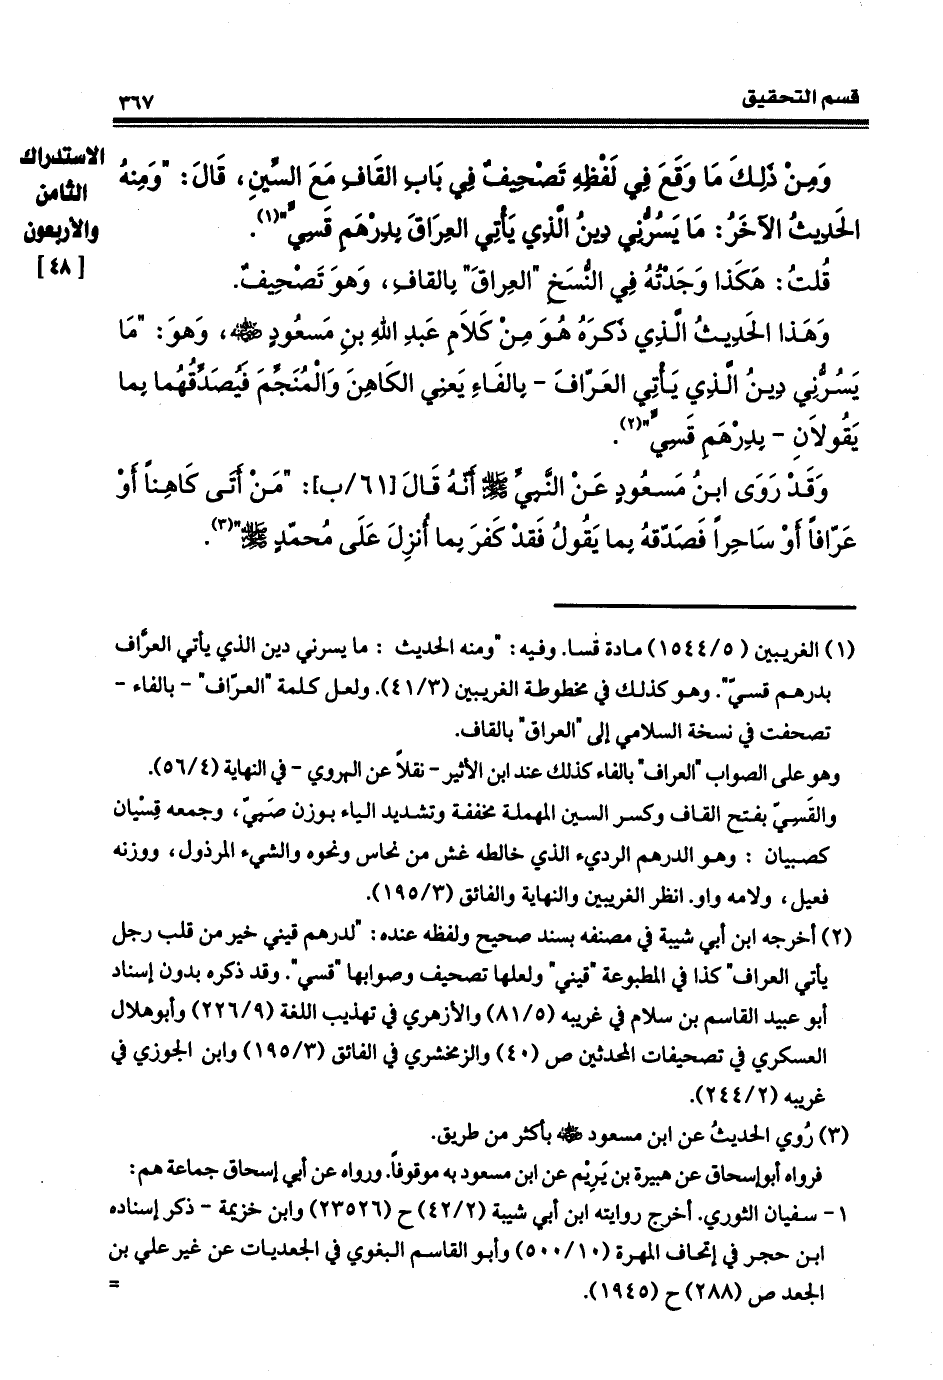 قسم التحقيق
٣٦٧
الاستدراك
الثامن
والأربعون
[٤٨]
وَمِنْ ذَلِكَ مَا وَقَعَ فِي لَفْظِهِ تَصْحِيفٌ فِي بَابِ القَافِ مَعَ السِّينِ، قَالَ: "وَمِنهُ
الحَدِيثُ الآخَرُ: مَا يَسُرُّنِي دِينُ الَّذِي يَأْتِي العِرَاقَ بِدِرْهَمٍ قَسِيٍّ"(١).
قُلتُ: هَكَذا وَجَدْتُهُ فِي النُّسَخِ "العِراقَ" بِالقافِ، وَهوَ تَصْحِيفٌ.
وَهَذا الحَدِيثُ الَّذِي ذَكَرَهُ هُوَ مِنْ كَلَامِ عَبدِ اللهِ بنِ مَسعُودٍ ﷺ، وَهوَ: "مَا
يَسُرُّنِي دِينُ الَّذِي يَأْتِي العَرّافَ - بِالفَاءِ يَعنِي الكَاهِنَ وَالْمُنَجِّمَ فَيُصَدِّقُهُما بِما
يَقُولاَنِ - بِدِرْهَمٍ قَسِيٍّ"(٢).
وَقَدْ رَوَى ابنُ مَسعُودٍ عَنْ النَّبِيِّ ﷺ أَنَّهُ قَالَ [٦١/ب]: "مَنْ أَتَى كَاهِناً أَوْ
عَرَّافاً أَوْ سَاحِراً فَصَدّقهُ بِما يَقُولُ فَقدْ كَفَرَ بِما أُنزِلَ عَلَى مُحمّدٍ ﷺ"(٣).
(١) الغريبين (١٥٤٤/٥) مادة قسا. وفيه: "ومنه الحديث : ما يسرني دين الذي يأتي العرَّاف
بدرهم قسيّ". وهو كذلك في مخطوطة الغريبين (٤١/٣). ولعل كلمة "العرّاف" - بالفاء -
تصحفت في نسخة السلامي إلى "العراق" بالقاف.
وهو على الصواب "العراف" بالفاء كذلك عند ابن الأثير - نقلاً عن الهروي - في النهاية (٥٦/٤).
والقَسِيّ بفتح القاف وكسر السين المهملة مخففة وتشديد الياء بوزن صَبِيّ، وجمعه قِسْيان
كصبيان : وهو الدرهم الرديء الذي خالطه غش من نحاس ونحوه والشيء المرذول، ووزنه
فعيل، ولامه واو. انظر الغريبين والنهاية والفائق (١٩٥/٣).
(٢) أخرجه ابن أبي شيبة في مصنفه بسند صحيح ولفظه عنده: "لدرهم قيني خير من قلب رجل
يأتي العراف" كذا في المطبوعة "قيني" ولعلها تصحيف وصوابها "قسي". وقد ذكره بدون إسناد
أبو عبيد القاسم بن سلام في غريبه (٨١/٥) والأزهري في تهذيب اللغة (٢٢٦/٩) وأبوهلال
العسكري في تصحيفات المحدثين ص (٤٠) والزمخشري في الفائق (١٩٥/٣) وابن الجوزي في
غريبه (٢٤٤/٢).
(٣) رُوي الحديثُ عن ابن مسعود ﷺ بأكثر من طريق.
فرواه أبوإسحاق عن هبيرة بن يَرِيْم عن ابن مسعود به موقوفاً. ورواه عن أبي إسحاق جماعة هم:
١- سفيان الثوري. أخرج روايته ابن أبي شيبة (٤٢/٢) ح (٢٣٥٢٦) وابن خزيمة - ذكر إسناده
ابن حجر في إتحاف المهرة (٥٠٠/١٠) وأبو القاسم البغوي في الجعديات عن غير علي بن
الجعد ص (٢٨٨) ح (١٩٤٥).
=